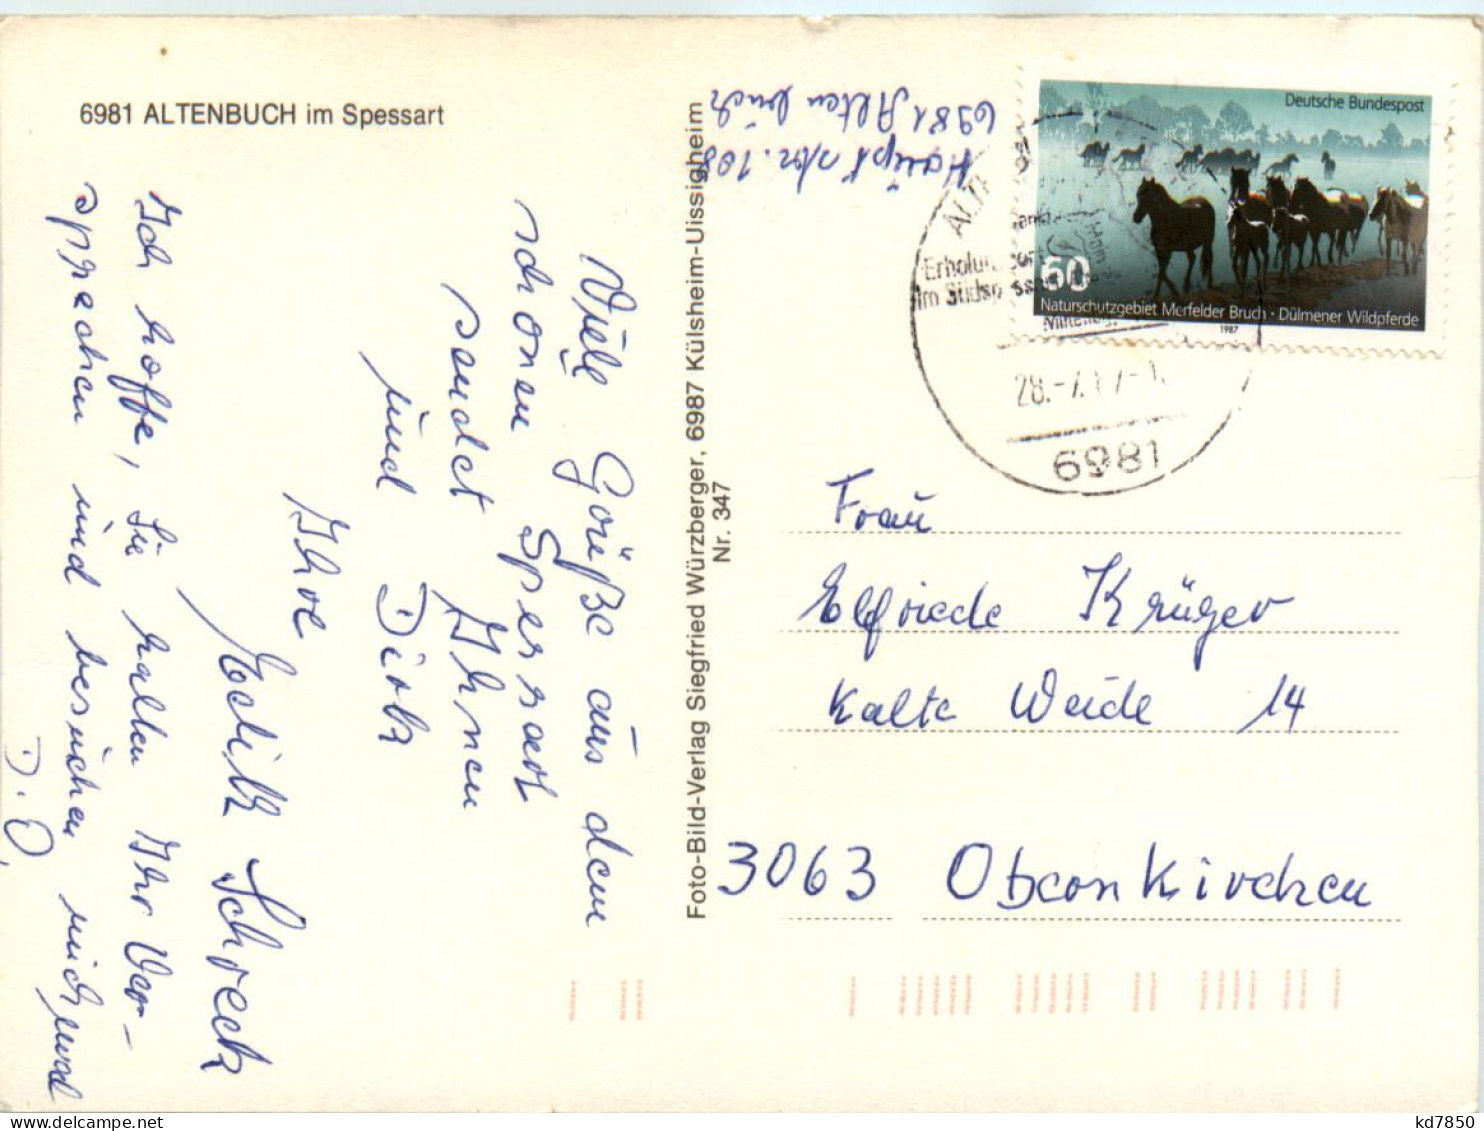 6981 ALTENBUCH im Spessart
Viele Grüße aus dem
schönen Spessart
sendet Ihnen
und Dirk
Ihre
Edith Schreck
Ich hoffe, Sie halten Ihr Ver-
sprechen und besuchen mich mal
D.O.
Foto-Bild-Verlag Siegfried Würzberger, 6987 Külsheim-Uissigheim
Nr. 347
Hauptstr. 108
6981 Altenbuch
Deutsche Bundespost
60
Naturschutzgebiet Merfelder Bruch · Dülmener Wildpferde
1987
Erholungsort
im Südspessart
6981
Frau
Elfriede Krüger
Kalte Weide 14
3063 Obernkirchen
kd7850